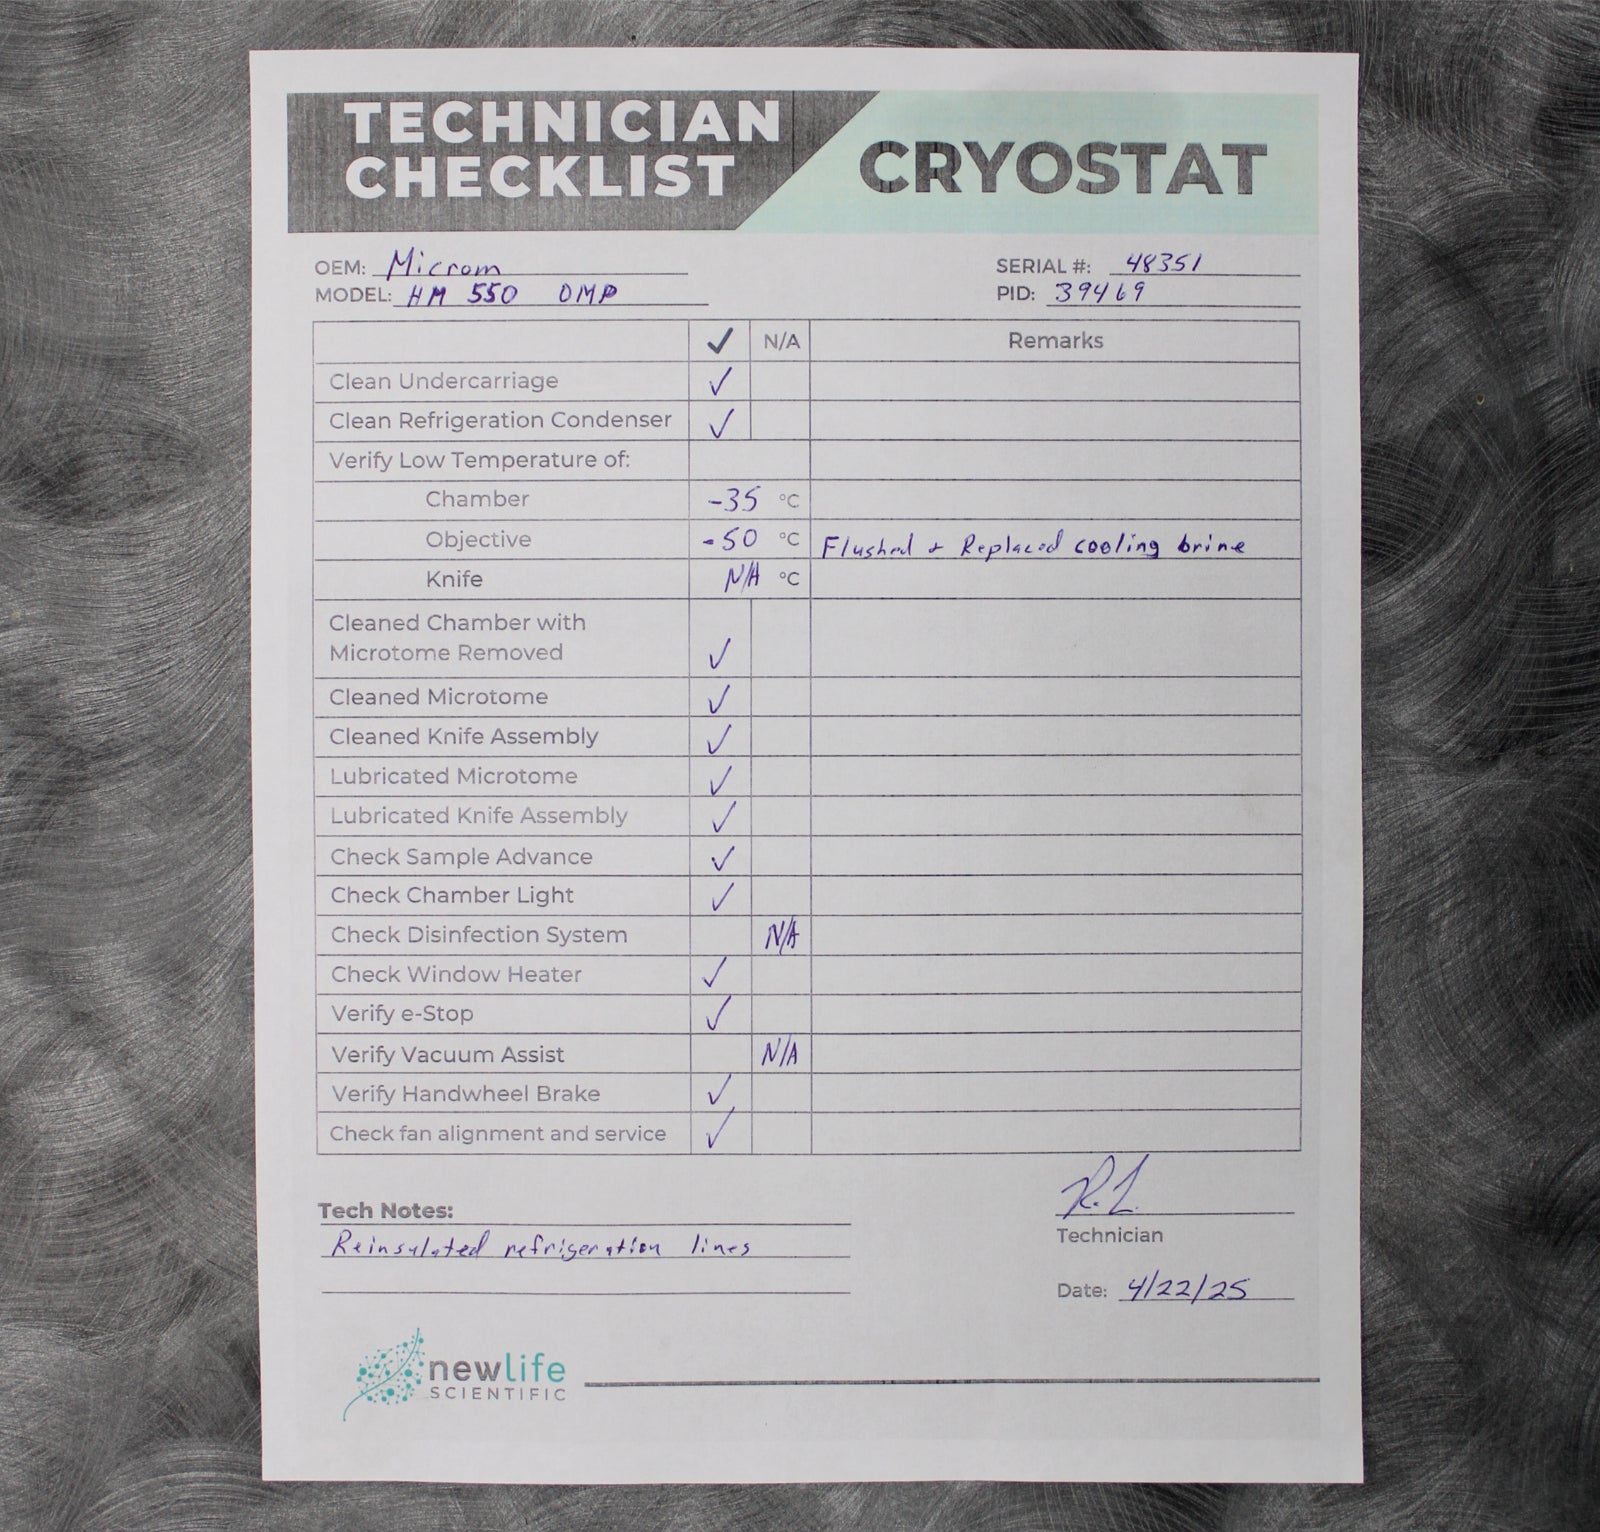 TECHNICIAN
CHECKLIST
CRYOSTAT
OEM: Microm
SERIAL #: 48351
MODEL: HM 550 OMP
PID: 39469
✓ N/A Remarks
Clean Undercarriage ✓
Clean Refrigeration Condenser ✓
Verify Low Temperature of:
Chamber -35 °C
Objective -50 °C Flushed + Replaced cooling brine
Knife N/A °C
Cleaned Chamber with
Microtome Removed ✓
Cleaned Microtome ✓
Cleaned Knife Assembly ✓
Lubricated Microtome ✓
Lubricated Knife Assembly ✓
Check Sample Advance ✓
Check Chamber Light ✓
Check Disinfection System N/A
Check Window Heater ✓
Verify e-Stop ✓
Verify Vacuum Assist N/A
Verify Handwheel Brake ✓
Check fan alignment and service ✓
R. L
Technician
Tech Notes:
Reinsulated refrigeration lines
Date: 4/22/25
newlife
SCIENTIFIC